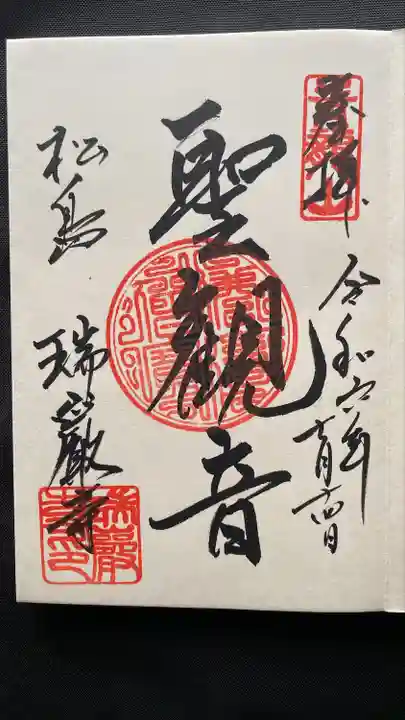 奉拝
令和六年十月十四日
聖観音
松島 瑞巌寺